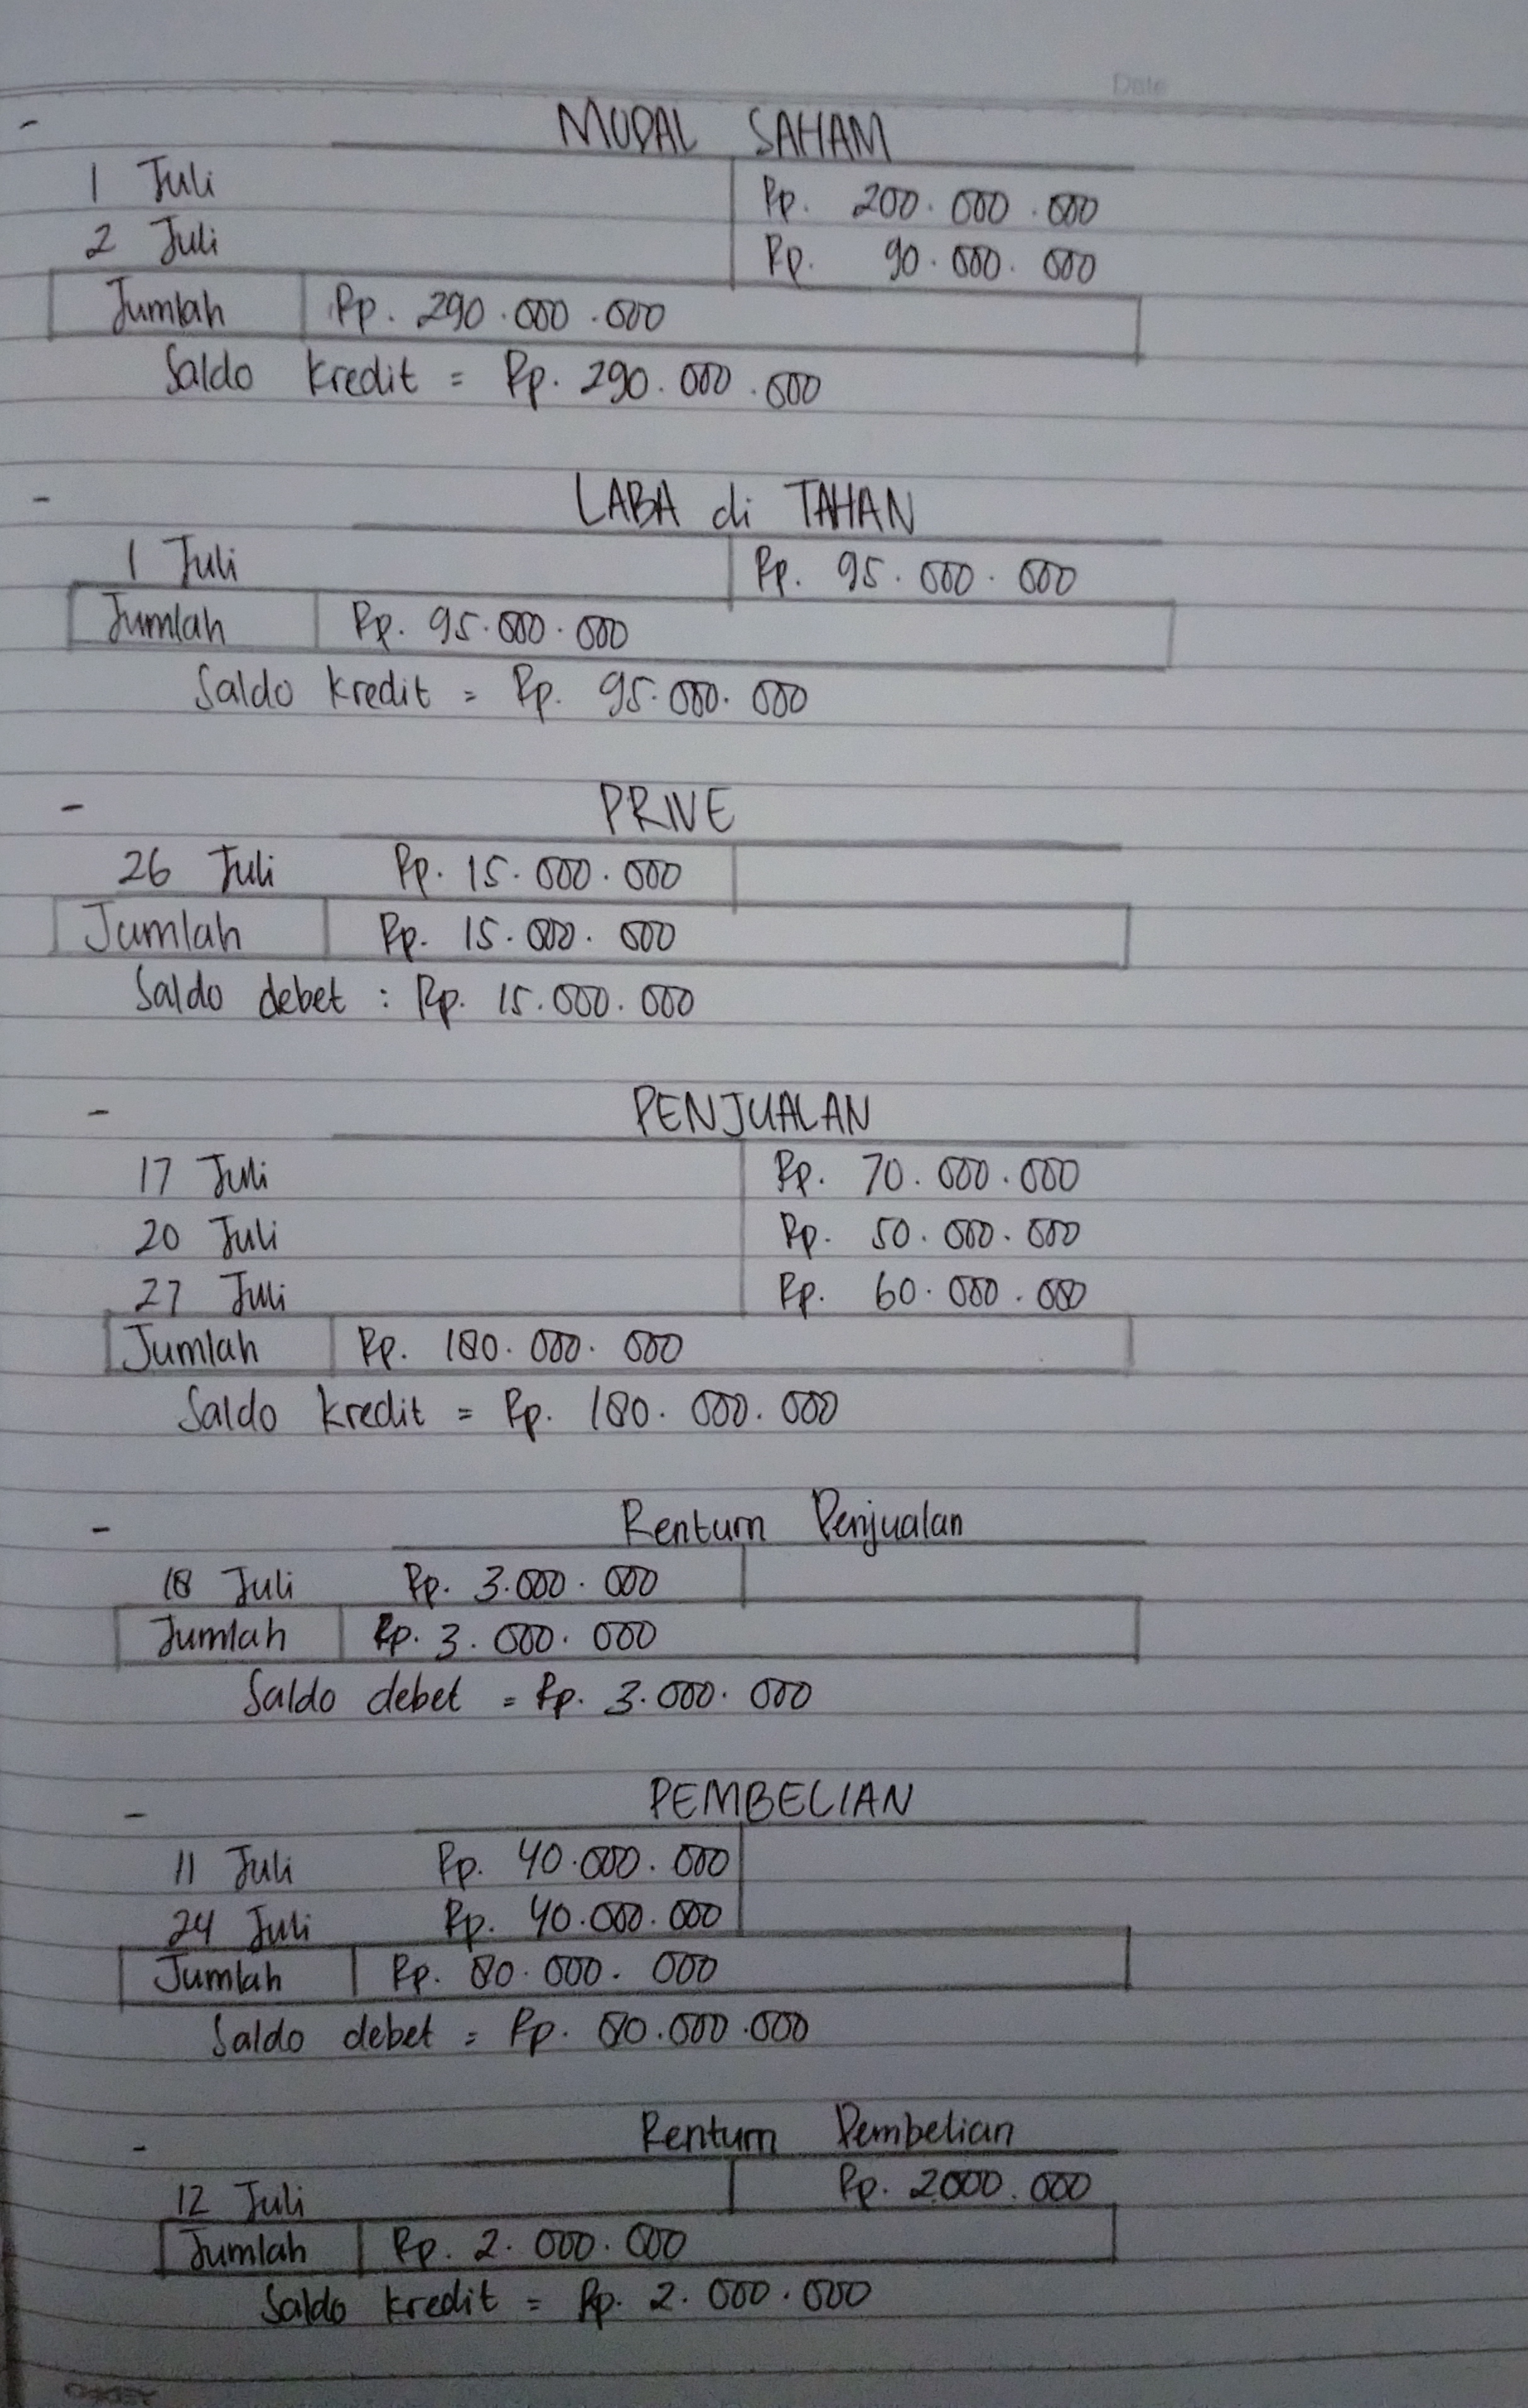 Date
- MODAL SAHAM
1 Juli Rp. 200.000.000
2 Juli Rp. 90.000.000
Jumlah Rp. 290.000.000
Saldo kredit = Rp. 290.000.000
- LABA di TAHAN
1 Juli Rp. 95.000.000
Jumlah Rp. 95.000.000
Saldo kredit = Rp. 95.000.000
- PRIVE
26 Juli Rp. 15.000.000
Jumlah Rp. 15.000.000
Saldo debet : Rp. 15.000.000
- PENJUALAN
17 Juli Rp. 70.000.000
20 Juli Rp. 50.000.000
27 Juli Rp. 60.000.000
Jumlah Rp. 180.000.000
Saldo kredit = Rp. 180.000.000
- Renturn Penjualan
18 Juli Rp. 3.000.000
Jumlah Rp. 3.000.000
Saldo debet = Rp. 3.000.000
- PEMBELIAN
11 Juli Rp. 40.000.000
24 Juli Rp. 40.000.000
Jumlah Rp. 80.000.000
Saldo debet = Rp. 80.000.000
- Renturn Pembelian
12 Juli Rp. 2000.000
Jumlah Rp. 2.000.000
Saldo kredit = Rp. 2.000.000